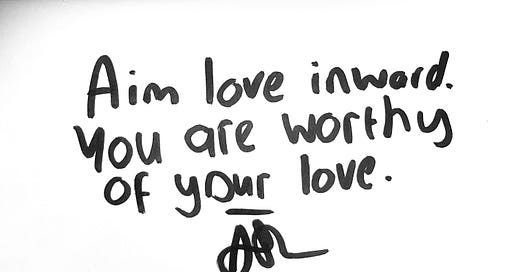 Aim love inward.
You are worthy
of your love.